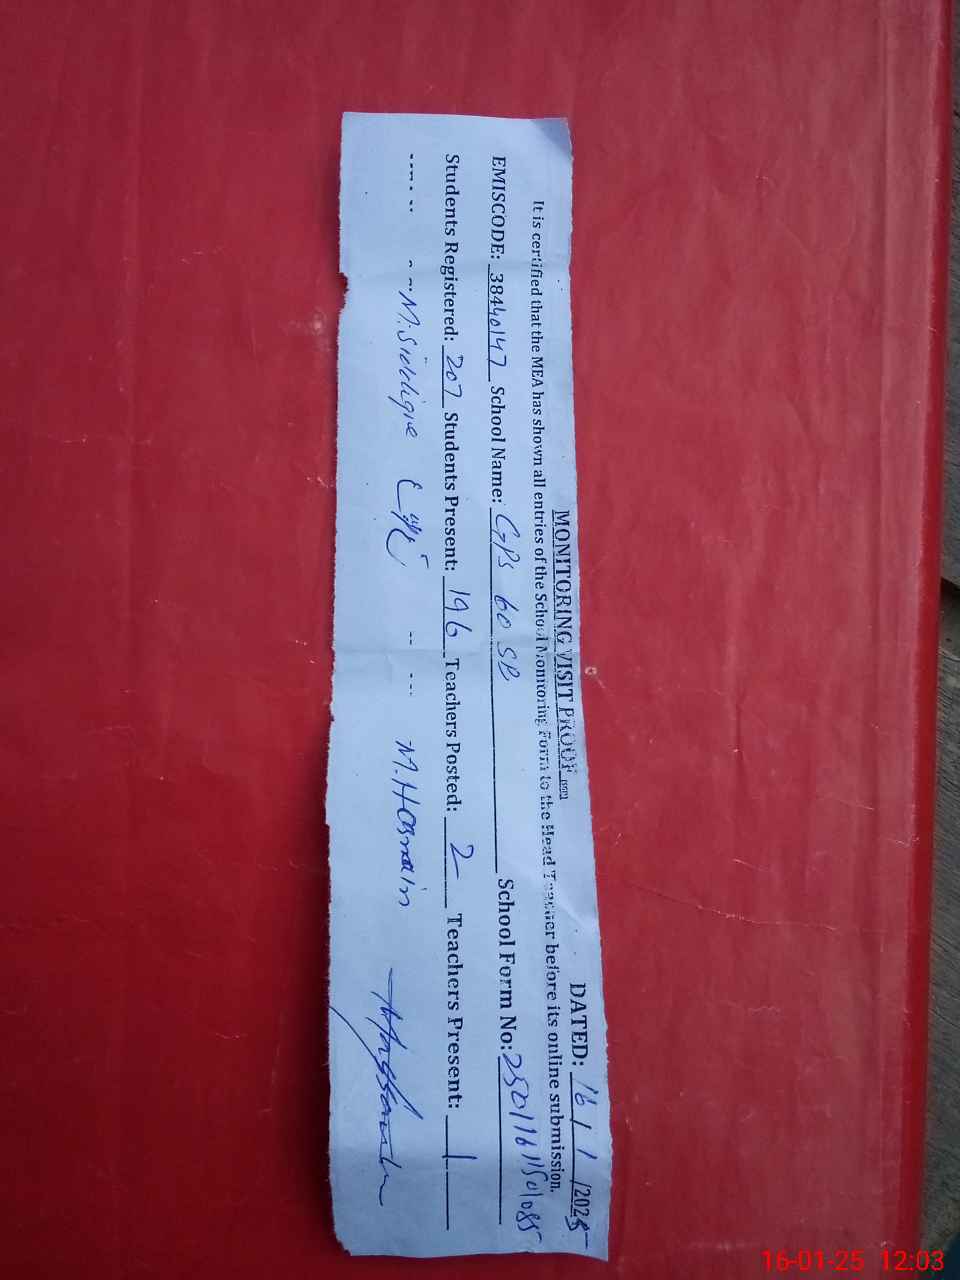 MONITORING VISIT PROOF DATED: 16/1/2025
It is certified that the MEA has shown all entries of the School Monitoring Form to the Head Teacher before its online submission.
EMISCODE: 38440147 School Name: GPS 60 SB School Form No:
Students Registered: 207 Students Present: 196 Teachers Posted: 2 Teachers Present: 1
M.Siddique M.Hasnain
16-01-25 12:03